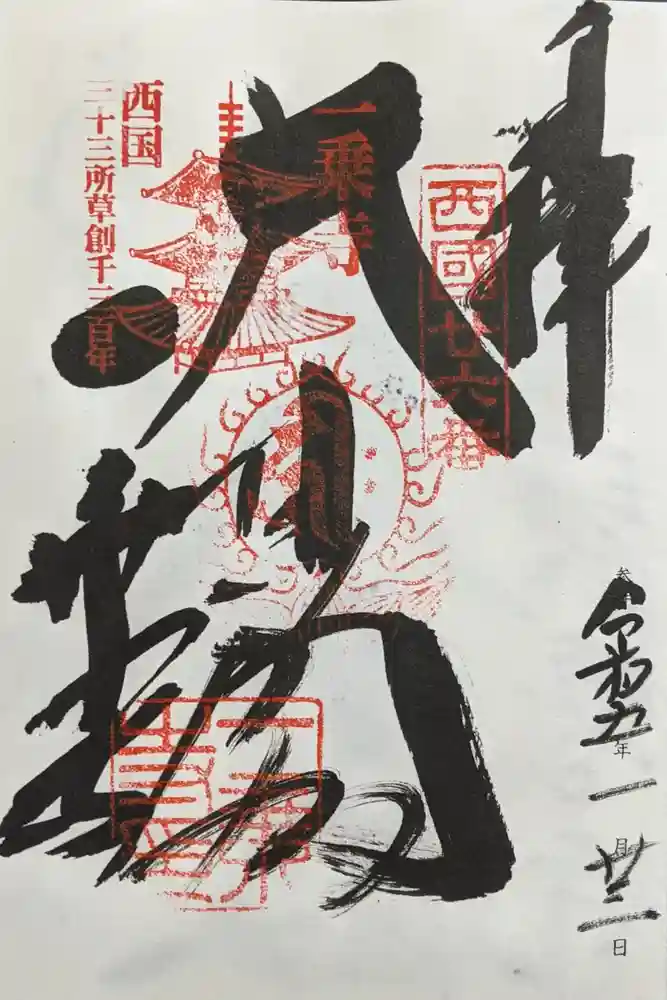 拝
西國廿六番
一乗寺
大悲閣
西国
三十三所草創千三百年
一乗寺
令和五年一月廿二日